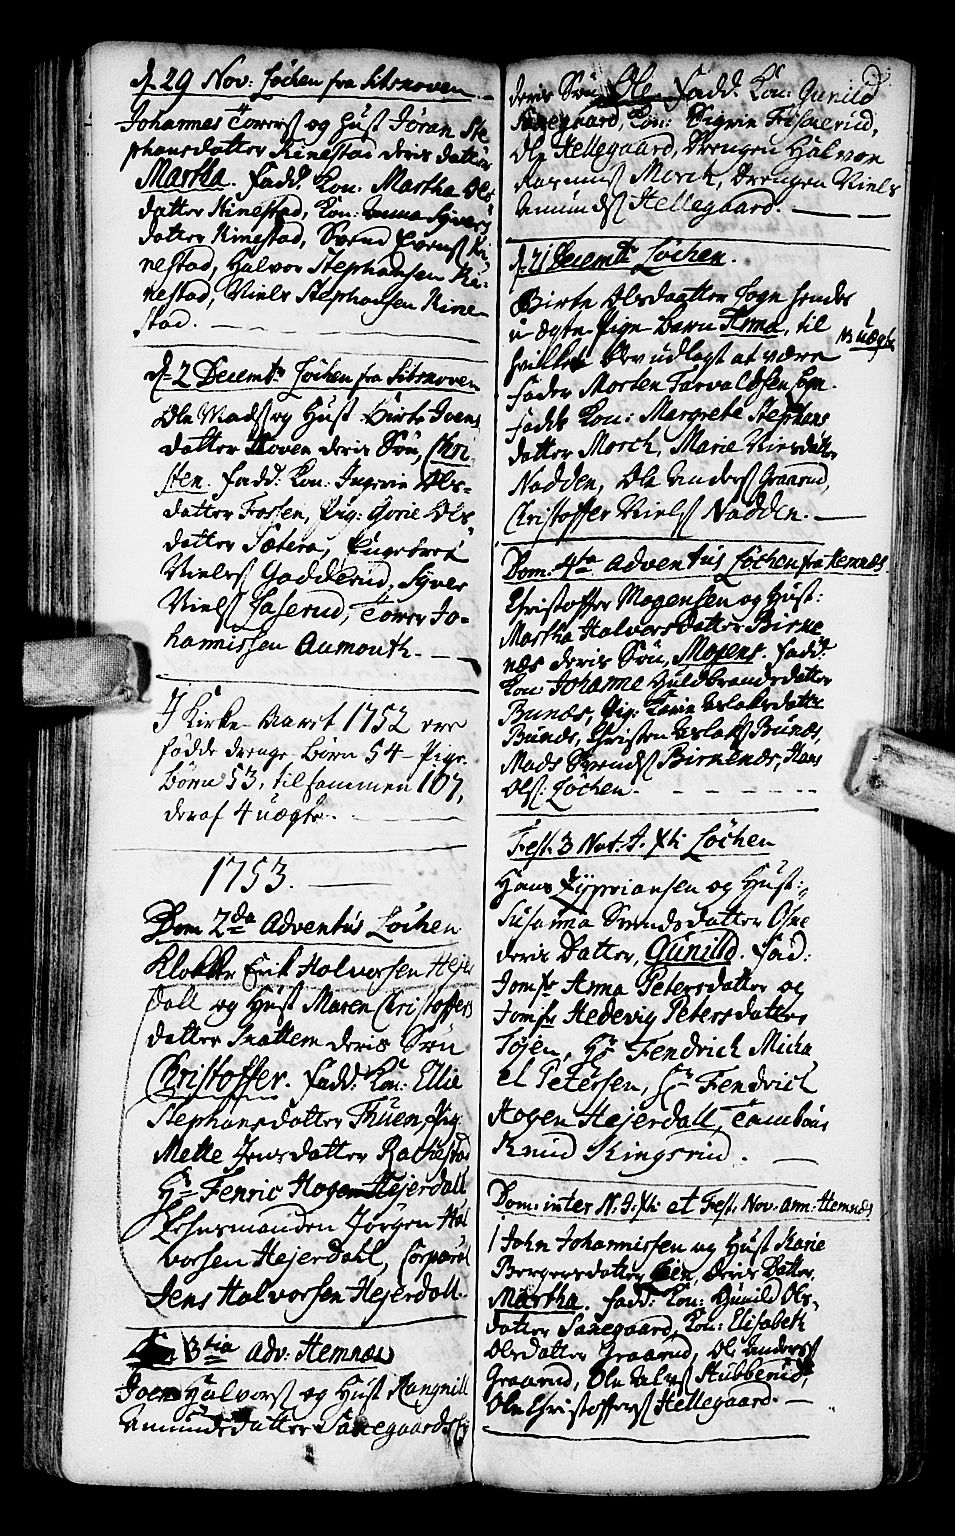 d. 29 Nov: Løchen fra Sitskoven
Johannes Torers og Hust Jøran Ste
phansdatter Kinestad deris datter
Martha. fadd. Kon: Martha Ols
datter Kinestad, Kon: Anna Syvers
datter Kinestad, Svend Evens Ki
nestad, Halvor Stephansen Ki
nestad, Niels Stephansen Kine
stad.
d. 2 Decembr Løchen fra Sitskoven
Ole Mads og Hust Birte Ivers
datter Hoven deris Søn, Chri
sten. fadd: Kon: Ingerin Ols
datter Fossen, Pig: Gorie Ols
datter Sætera, Ungekarl
Niels Gadderud, Syver
Niels Laserud, Torer Jo
hannissen Aumonth.
I Kirke Aaret 1752 ere
fødde drenge Børn 54 – Pige
børn 53, tilsammen 107,
deraf 4 uægte.
1753.
Dom 2da Adventus Løchen
Klokker Erik Halvorsen Hejer
dall og Hust Maren Christoffers
datter Snattem deris Søn
Christoffer. fadd: Kon: Ellie
Stephansdatter Thuen, Pig:
Mette Jensdatter Rachestad
Hr Fenric Hogen Hejerdall
Lehnsmanden Jørgen Hal
vorsen Hejerdahl, Corporal
Jens Halvorsen Hejerdall.
3tia Adv: Hemnæs
Joen Halvors og Hust Rangnill
Amundsdatter Saxegaardsej
deris Søn Ole. fadd. Kon: Gunild
Saxegaard, Kon: Sigrin Fosnerud,
Ole Hellegaard, Drengen Halvor
Rasmus Morck, drengen Niels
Amunds Hellegaard.
d. 21 Decembr Løchen.
Birte Olsdaatter Sogn hendes
uægte Pige barn Anna, til
hvilket blev udlagt at være
Fader Morten Tarvaldsen Sogn.
Fadd: Kon: Margrete Stephans
datter Morck, Marie Nielsdatter
Nadden, Ole Anders Graarud,
Christoffer Niels Nadden.
1
NB uægte
Dom: 4ta Adventus Løchen fra Hemnæs
Christoffer Mogensen og Hust:
Martha Halvorsdatter Birke
næs deris Søn, Mogens. fadd:
Kon Johanne Huldbrandsdatter
Bunæs, Pig: Karie Aslaksdatter
Bunæs, Christen Aslaks Bunæs,
Mads Svends Birkenæs, Hans
Ols: Løchen.
Fest. 3 Nat. J. Xti Løchen
Hans Zypriansen og Hust:
Susanna Svendsdatter Osne
deris Datter, Gunild. Fad:
Jomfr Anna Petersdatter og
Jomfr Hedevig Petersdatter
Tosen, Hr Fendrich Micha
el Petersen, Hr Fendrich
Hogen Hejerdall, Tambour
Knud Kingsrud.
Dom: inter N. J. Xti et Fest. Nov. ann: Hemnæs
John Johannissen og Hust Karie
Bergersdatter Lien, deris Datter,
Martha. fadd: Kon: Gunild Ols
datter Saxegaard, Kon: Elisabeth
Olsdatter Graarud, Ole Anders
Graarud, Ole Alfs Stubberud,
Ole Christoffers Hellegaard.